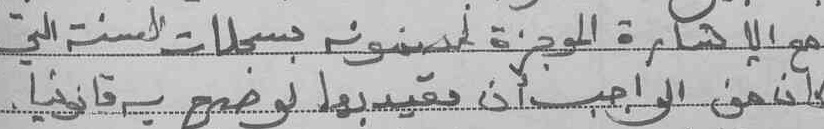 مع الإشارة الموجزة لمضمونه بسجلات السنة التي
كان من الواجب أن يقيد بها لو صرح به قانونيا.